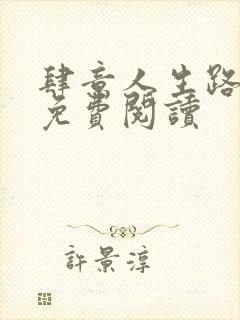 肆意人生路
免費閱讀
許景淳